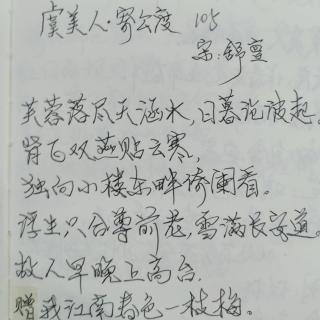 虞美人·寄公度 105
宋:舒亶
芙蓉落尽天涵水,日暮沧波起。
背飞双燕贴云寒,
独向小楼东畔倚阑看。
浮生只合尊前老,雪满长安道。
故人早晚上高台,
赠我江南春色一枝梅。